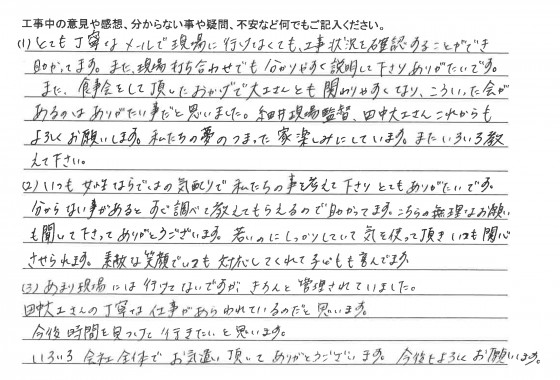 工事中の意見や感想、分からない事や疑問、不安など何でもご記入ください。
(1) とても丁寧なメールで現場に行けてなくても、工事状況を確認することができ
助かってます。また、現場打ち合わせでも分かりやすく説明して下さりありがたいです。
また、食事会をして頂したおかげで大工さんとも関わりやすくなり、こういった会が
あるのはありがたい事だと思いました。細井現場監督、田中大工さんこれからも
よろしくお願いします。私たちの夢のつまった家楽しみにしています。またいろいろ教
えて下さい。
(2) いつも女性ならではの気配りで私たちの事を考えて下さりとてもありがたいです。
分からない事があるとすぐ調べて教えてもらえるので助かってます。こちらの無理なお願い
も聞して下さってありがとうございます。若いのにしっかりしていて気を使って頂きいつも関心
させられます。素敵な笑顔でいつも対応してくれて子どもも喜んでます
(3) あまり現場には行けてないですが、きちんと管理されていました。
田中大工さんの丁寧な仕事があらわれているのだと思います。
今後時間を見つけて行きたいと思います。
いろいろ会社全体でお気遣い頂いてありがとうございます。今後もよろしくお願いします。